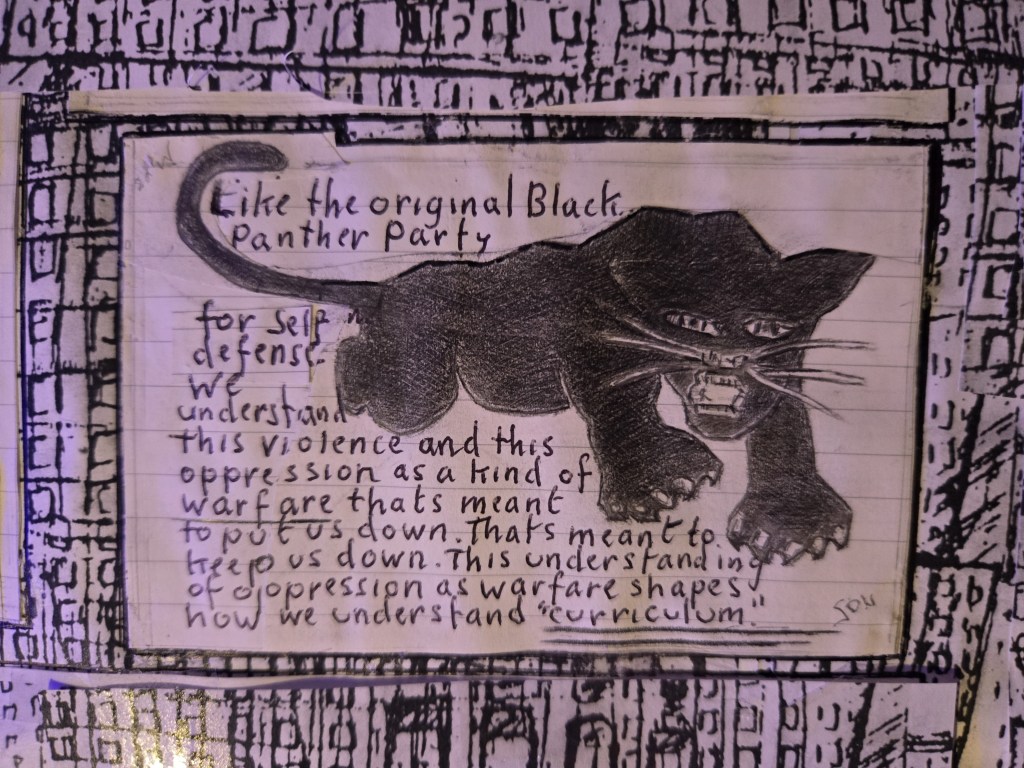 Like the original Black
Panther Party
for self
defense.
We
understand
this violence and this
oppression as a kind of
warfare thats meant
to put us down. Thats meant to
keep us down. This understanding
of oppression as warfare shapes
how we understand "curriculum."
JON